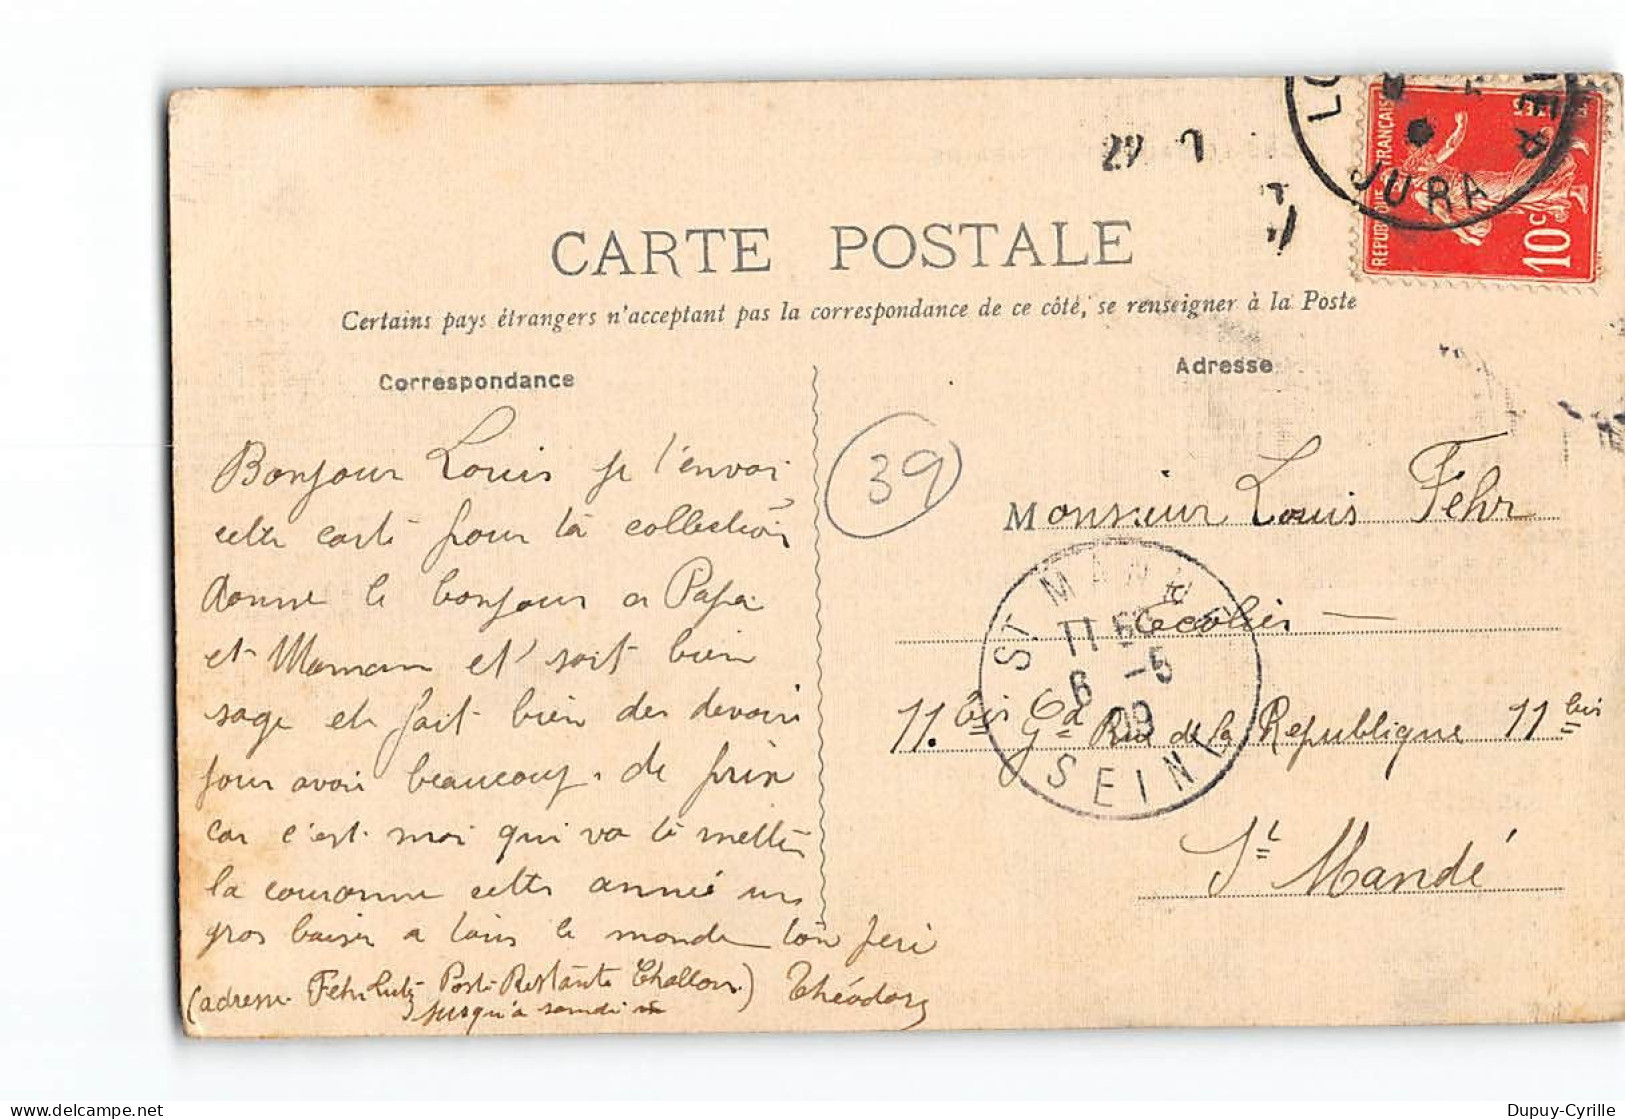 CARTE POSTALE
Certains pays étrangers n'acceptant pas la correspondance de ce côté, se renseigner à la Poste
Correspondance
Adresse
Bonjour Louis je t'envoi
cette carte pour ta collection
donne le bonjour a Papa
et Maman et soit bien
sage et fait bien des devoirs
pour avoir beaucoup de prix
car c'est moi qui va te mettre
la couronne cette année un
gros baiser a tous le monde ton
(adresse Fehr Poste Restante Challon) Théodore
jusqu'a samdi
39
Monsieur Louis Fehr
Ecolier
11.bis Gde Rue de la Republique 11bis
St Mandé
ST MANDE
11 50
6 -5
09
SEINE
LO
JURA
REPUBLIQUE FRANÇAISE
10c
Dupuy-Cyrille